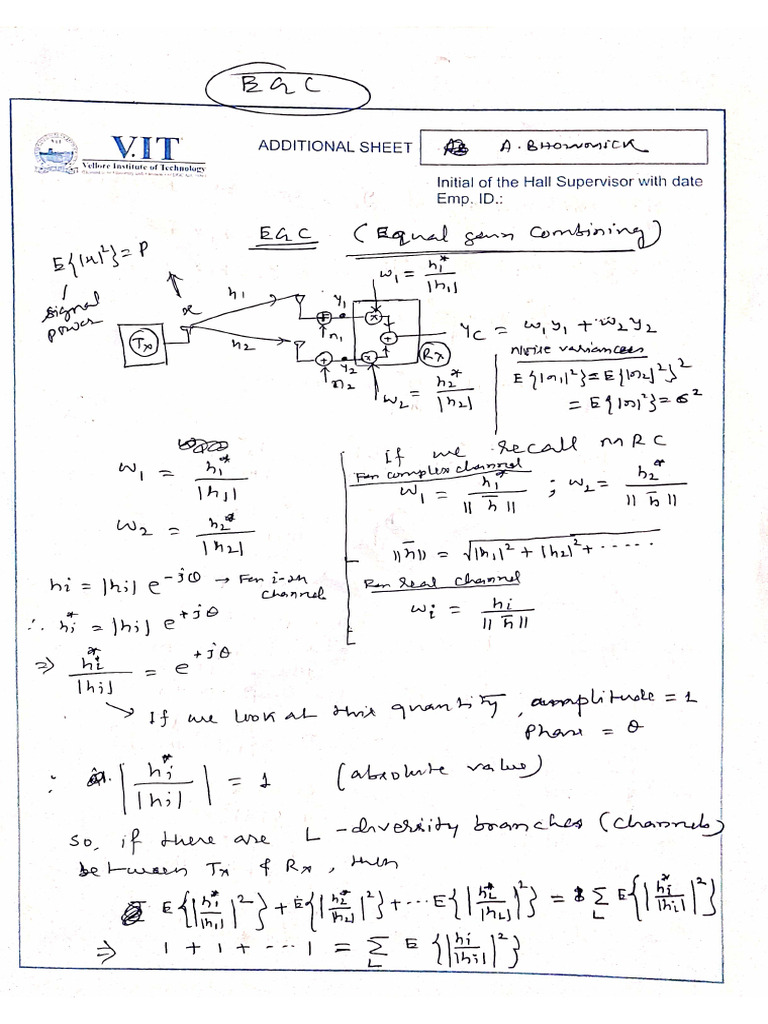 EGC
VIT
Vellore Institute of Technology
ADDITIONAL SHEET
A. BHOWMICK
Initial of the Hall Supervisor with date
Emp. ID.:
EGC (Equal gain Combining)
E{|x|²} = P
signal power
x
h₁
h₂
Tx
y₁
n₁
y₂
n₂
Rx
w₁ = h₁*/|h₁|
w₂ = h₂*/|h₂|
y_C = w₁y₁ + w₂y₂
Noise variances
E{|n₁|²} = E{|n₂|²}
= E{|n|²} = σ²
w₁ = h₁*/|h₁|
w₂ = h₂*/|h₂|
hi = |hi| e^{-jθ} → For i-th channel
∴ hi* = |hi| e^{+jθ}
⇒ hi*/|hi| = e^{+jθ}
If we recall MRC
For complex channel
w₁ = h₁*/||h̄|| ; w₂ = h₂*/||h̄||
||h̄|| = √|h₁|² + |h₂|² + ·····
For real channel
wi = hi/||h̄||
→ If we look at this quantity, amplitude = 1
Phase = θ
∴ |hi*/|hi|| = 1 (absolute value)
so, if there are L -diversity branches (channels)
between Tx & Rx, then
E{|h₁*/|h₁||²} + E{|h₂*/|h₂||²} + ··· E{|h_L*/|h_L||²} = Σ_L E{|hi*/|hi||²}
⇒ 1 + 1 + ··· 1 = Σ_L E{|hi/|hi||²}